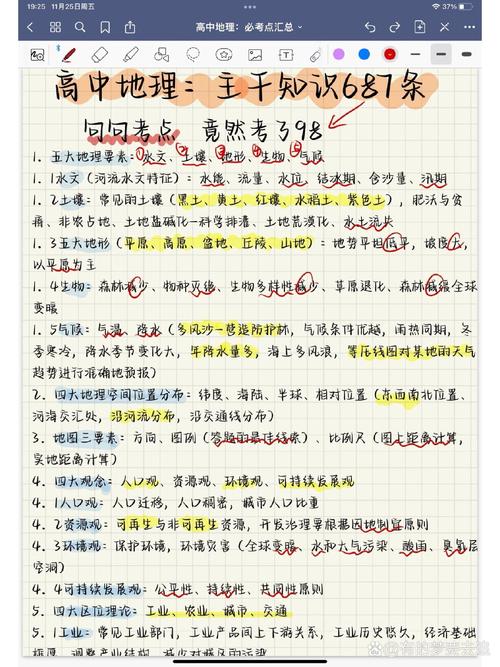 19:25 11月25日周五
37%
高中地理：必考点汇总
高中地理：主干知识687条
句句考点 竟然考了98
1. 五大地理要素：①水文、②土壤、③地形、④生物、⑤气候
1.1水文（河流水文特征）：水能、流量、水位、结冰期、含沙量、汛期
1.2土壤：常见的土壤（黑土、黄土、红壤、水稻土、紫色土），肥沃与贫
瘠、非农占地、土地盐碱化—科学排灌、土地荒漠化、水土流失
1.3五大地形（平原、高原、盆地、丘陵、山地）：地势平坦低平，坡度大，
以平原为主
1.4生物：森林减少、物种灭绝、生物多样性减少、草原退化、森林减缓全球
变暖
1.5气候：气温、降水（多风沙—营造防护林，气候条件优越，雨热同期，冬
季寒冷，降水季节变化大，年降水量多，海上多风浪，等压线图对某地的天气
趋势进行准确地预报）
2. 四大地理空间位置分布：纬度、海陆、半球、相对位置（东西南北位置、
河海交汇处，沿河流分布，沿交通线分布）
3. 地图三要素：方向、图例（答题的最佳线索）、比例尺（图上距离计算，
实地距离计算）
4. 四大观念：人口观、资源观、环境观、可持续发展观
4.1人口观：人口迁移，人口稠密，城市人口比重
4.2资源观：可再生与非可再生资源，开发治理要根据因地制宜原则
4.3环境观：保护环境，环境灾害（全球变暖、水和大气污染、酸雨、臭氧层
空洞）
4.4可持续发展观：公平性、持续性、共同性原则
5. 四大区位理论：工业、农业、城市、交通
5.1工业：常见工业部门，工业产品间上下游关系，工业历史悠久，经济基础